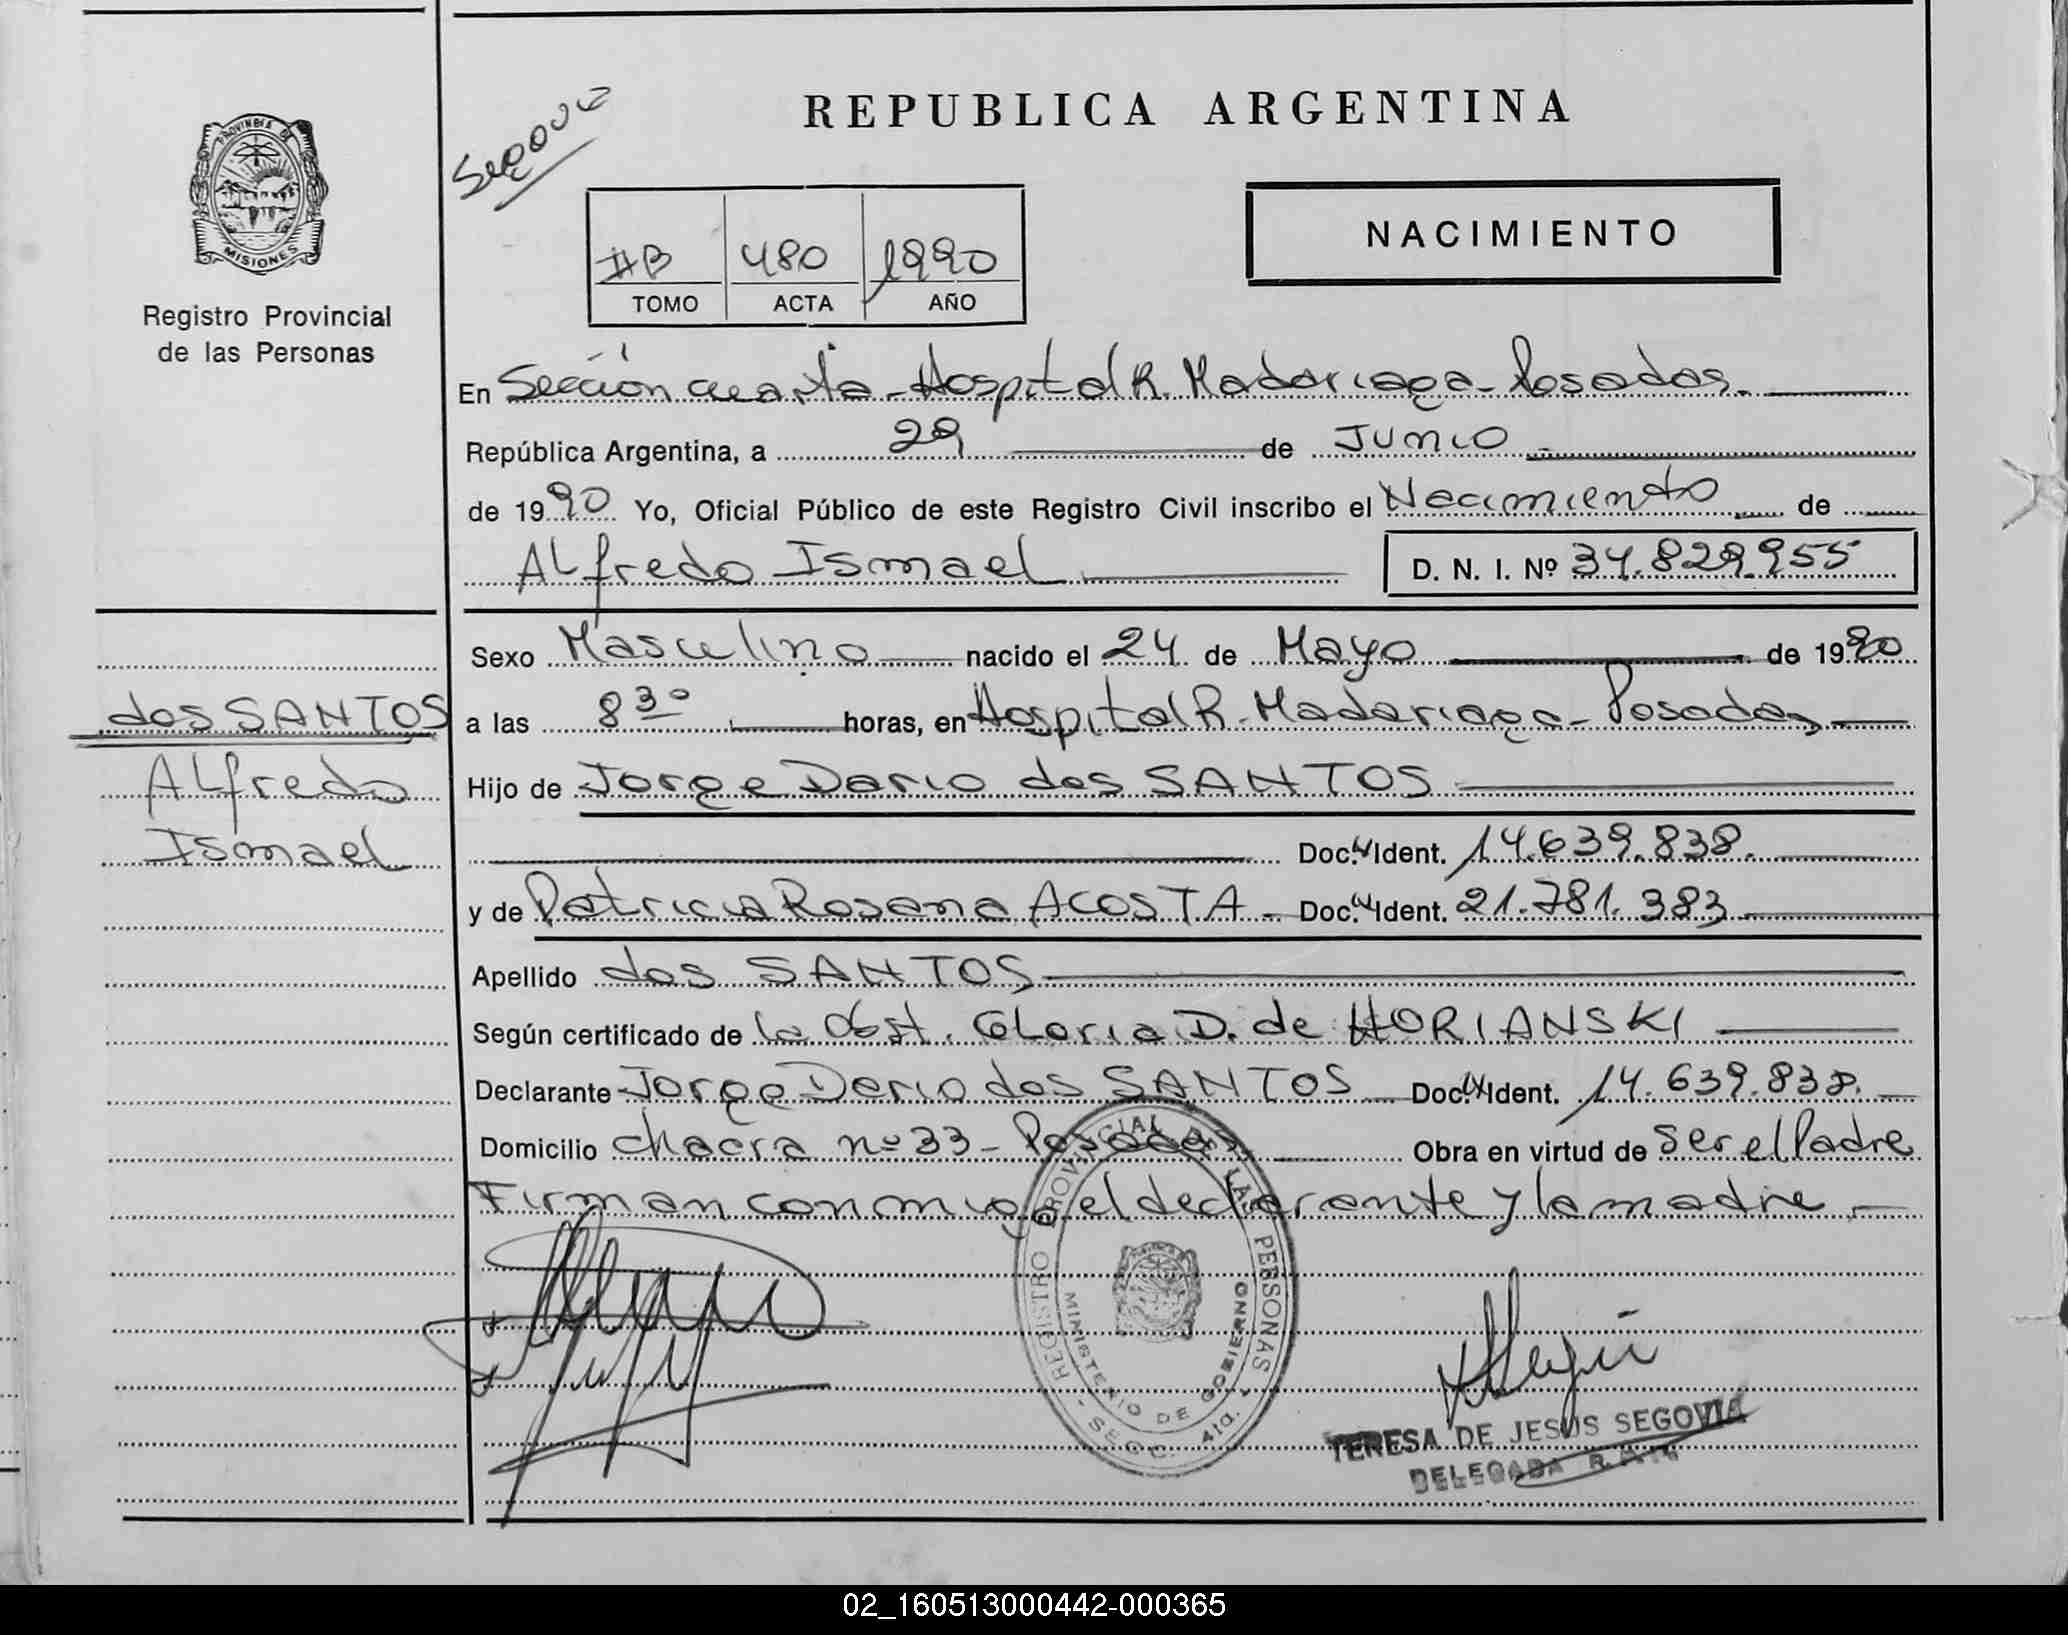 PROVINCIA DE
MISIONES
Registro Provincial
de las Personas
dos SANTOS
Alfredo
Ismael
REPUBLICA ARGENTINA
NACIMIENTO
IIB 480 1990
TOMO ACTA AÑO
En Sección cuarta - Hospital R. Madariaga - Posadas.
República Argentina, a 29 de Junio
de 1990 Yo, Oficial Público de este Registro Civil inscribo el Nacimiento de
Alfredo Ismael D. N. I. Nº 34.829.955
Sexo Masculino nacido el 24 de Mayo de 1990
a las 8 30 horas, en Hospital R. Madariaga - Posadas
Hijo de Jorge Dario dos SANTOS
Doc. Ident. 14.639.838.
y de Patricia Rosana ACOSTA - Doc. Ident. 21.781.383
Apellido dos SANTOS
Según certificado de la Obst. Gloria D. de HORIANSKI
Declarante Jorge Dario dos SANTOS Doc. Ident. 14.639.838.
Domicilio chacra nº 33 - Posadas Obra en virtud de ser el Padre
Firman conmigo el declarante y la madre -
REGISTRO PROVINCIAL DE LAS PERSONAS
MINISTERIO DE GOBIERNO
- SECC. 4ta. -
TERESA DE JESUS SEGOVIA
DELEGADA
02_160513000442-000365